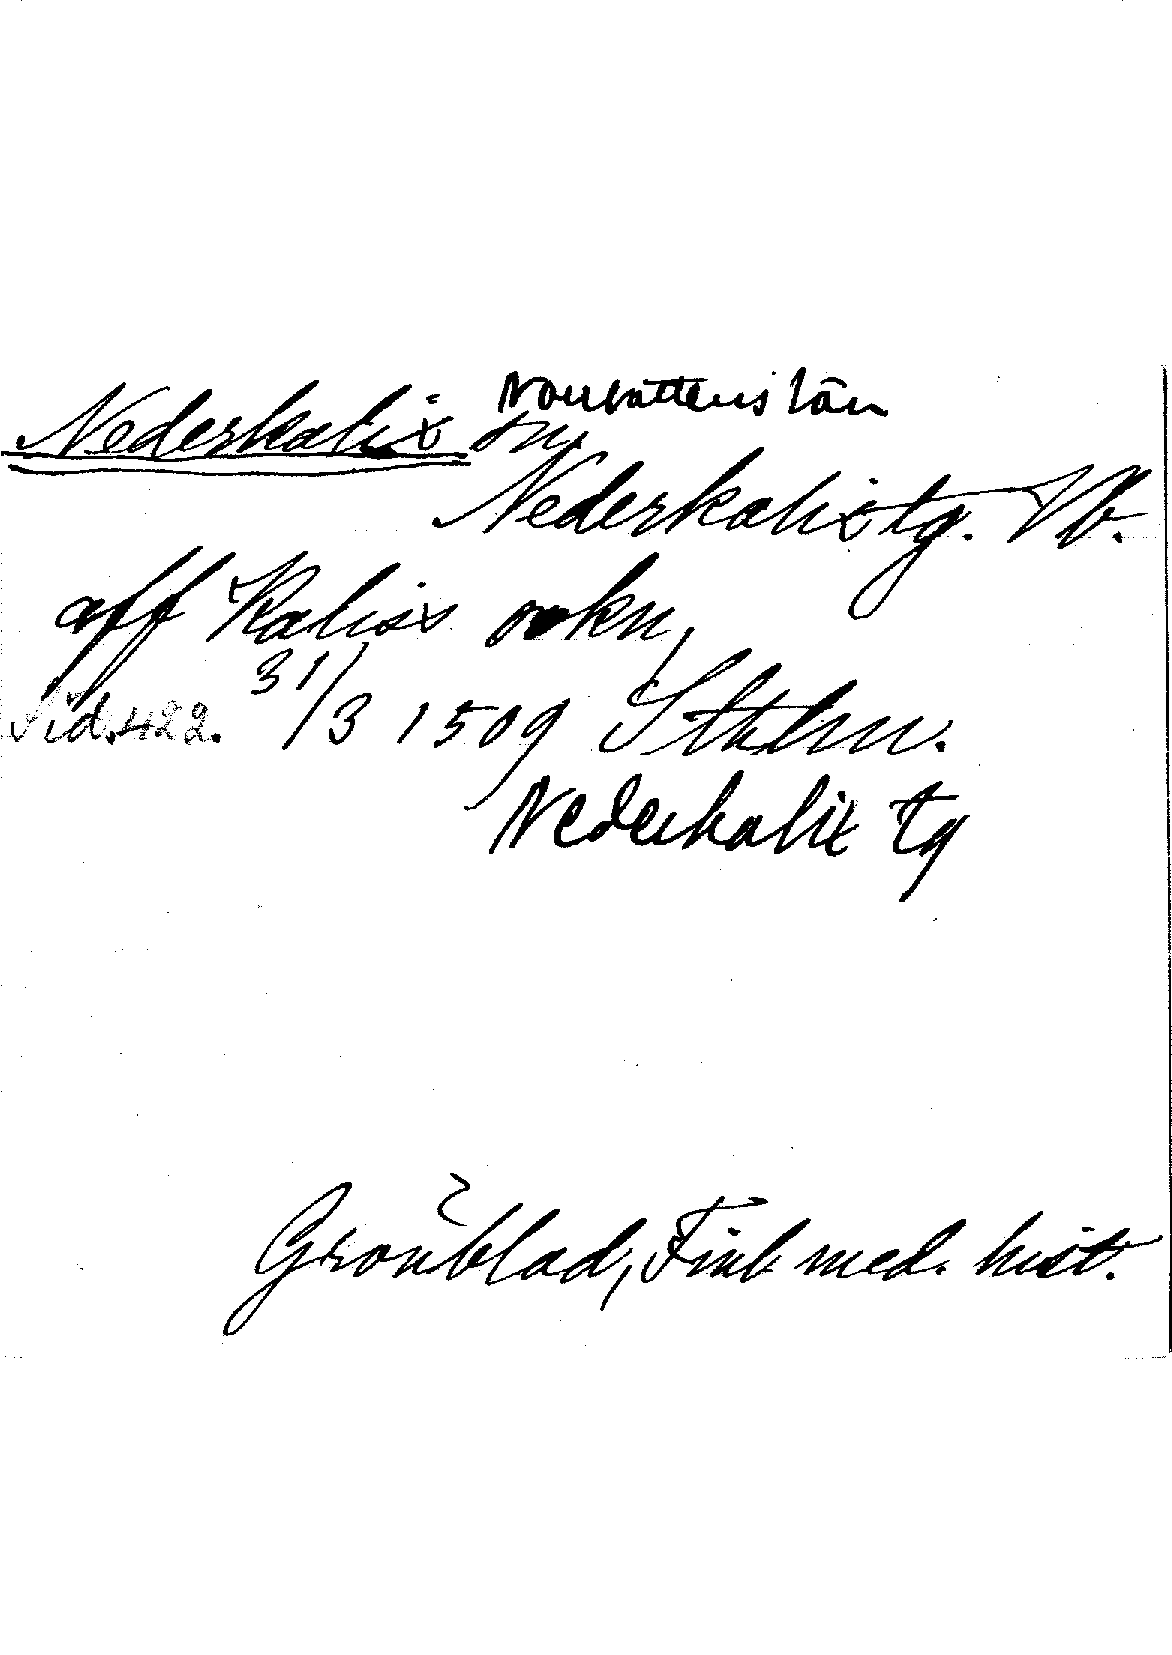 Norrbottens län
Nederkalix sn,
Nederkalix tg. Vb.
aff Kaliss sokn,
Sid. 422. 31/3 1509 Sthlm.
Nederkalix tg
Grönblad, Finl. med. hist.